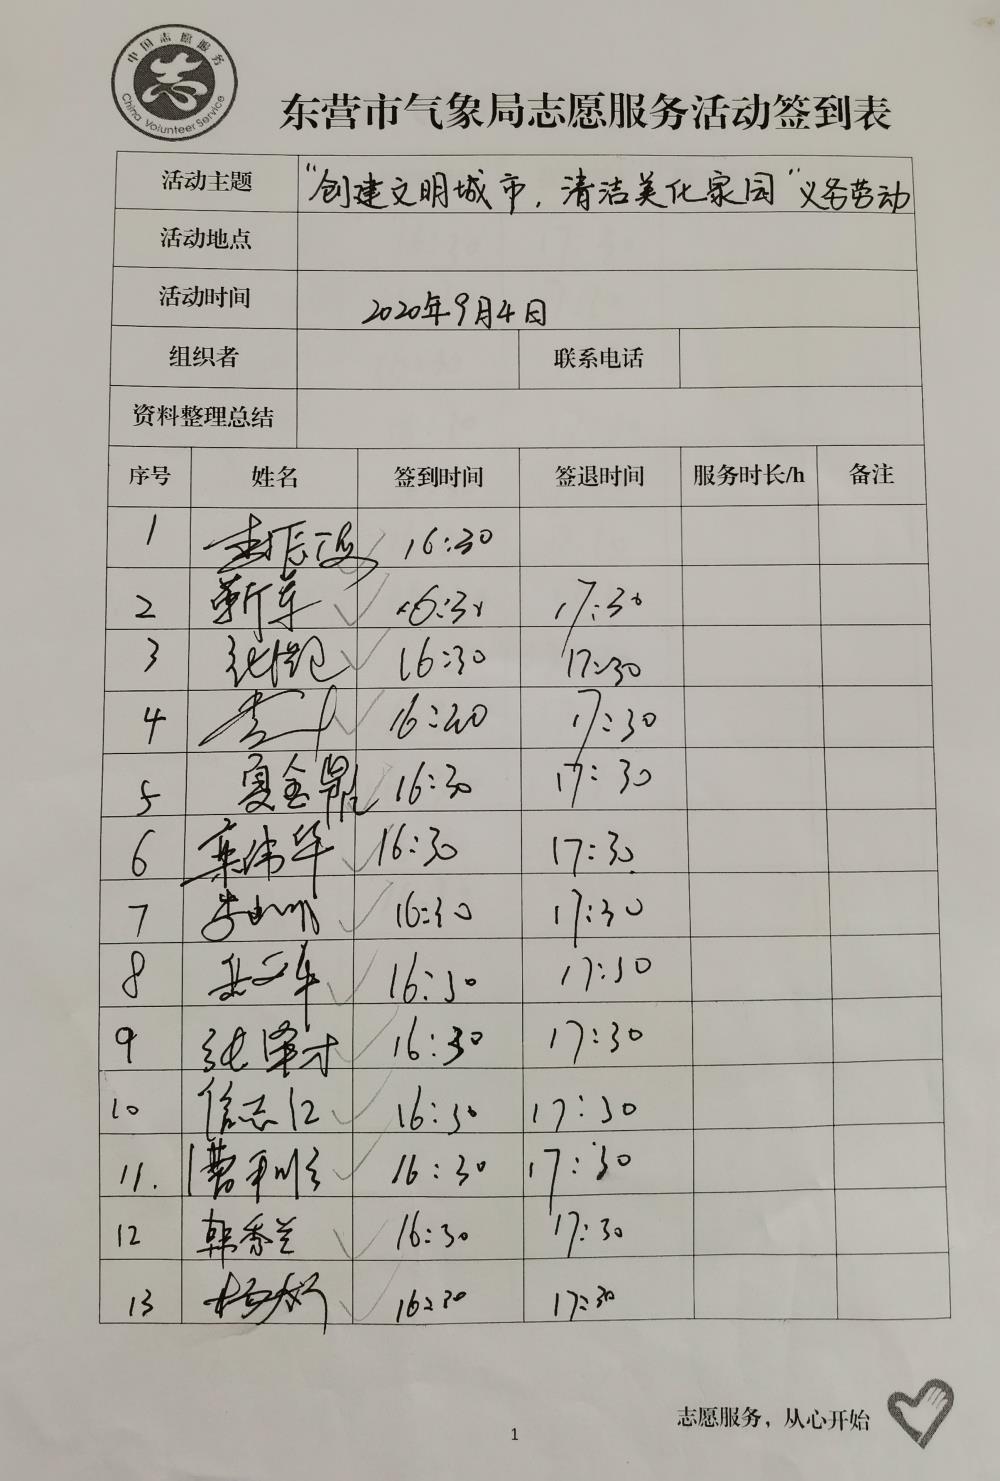 中国志愿服务
China Volunteer Service
东营市气象局志愿服务活动签到表
活动主题 "创建文明城市，清洁美化家园"义务劳动
活动地点
活动时间 2020年9月4日
组织者 联系电话
资料整理总结
序号 姓名 签到时间 签退时间 服务时长/h 备注
1 16:30
2 靳军 16:30 17:30
3 16:30 17:30
4 16:20 17:30
5 夏金鼎 16:30 17:30
6 栾伟华 16:30 17:30
7 16:30 17:30
8 16:30 17:30
9 张泽才 16:30 17:30
10 信志江 16:30 17:30
11. 16:30 17:30
12 韩香兰 16:30 17:30
13 16:30 17:30
志愿服务，从心开始
1